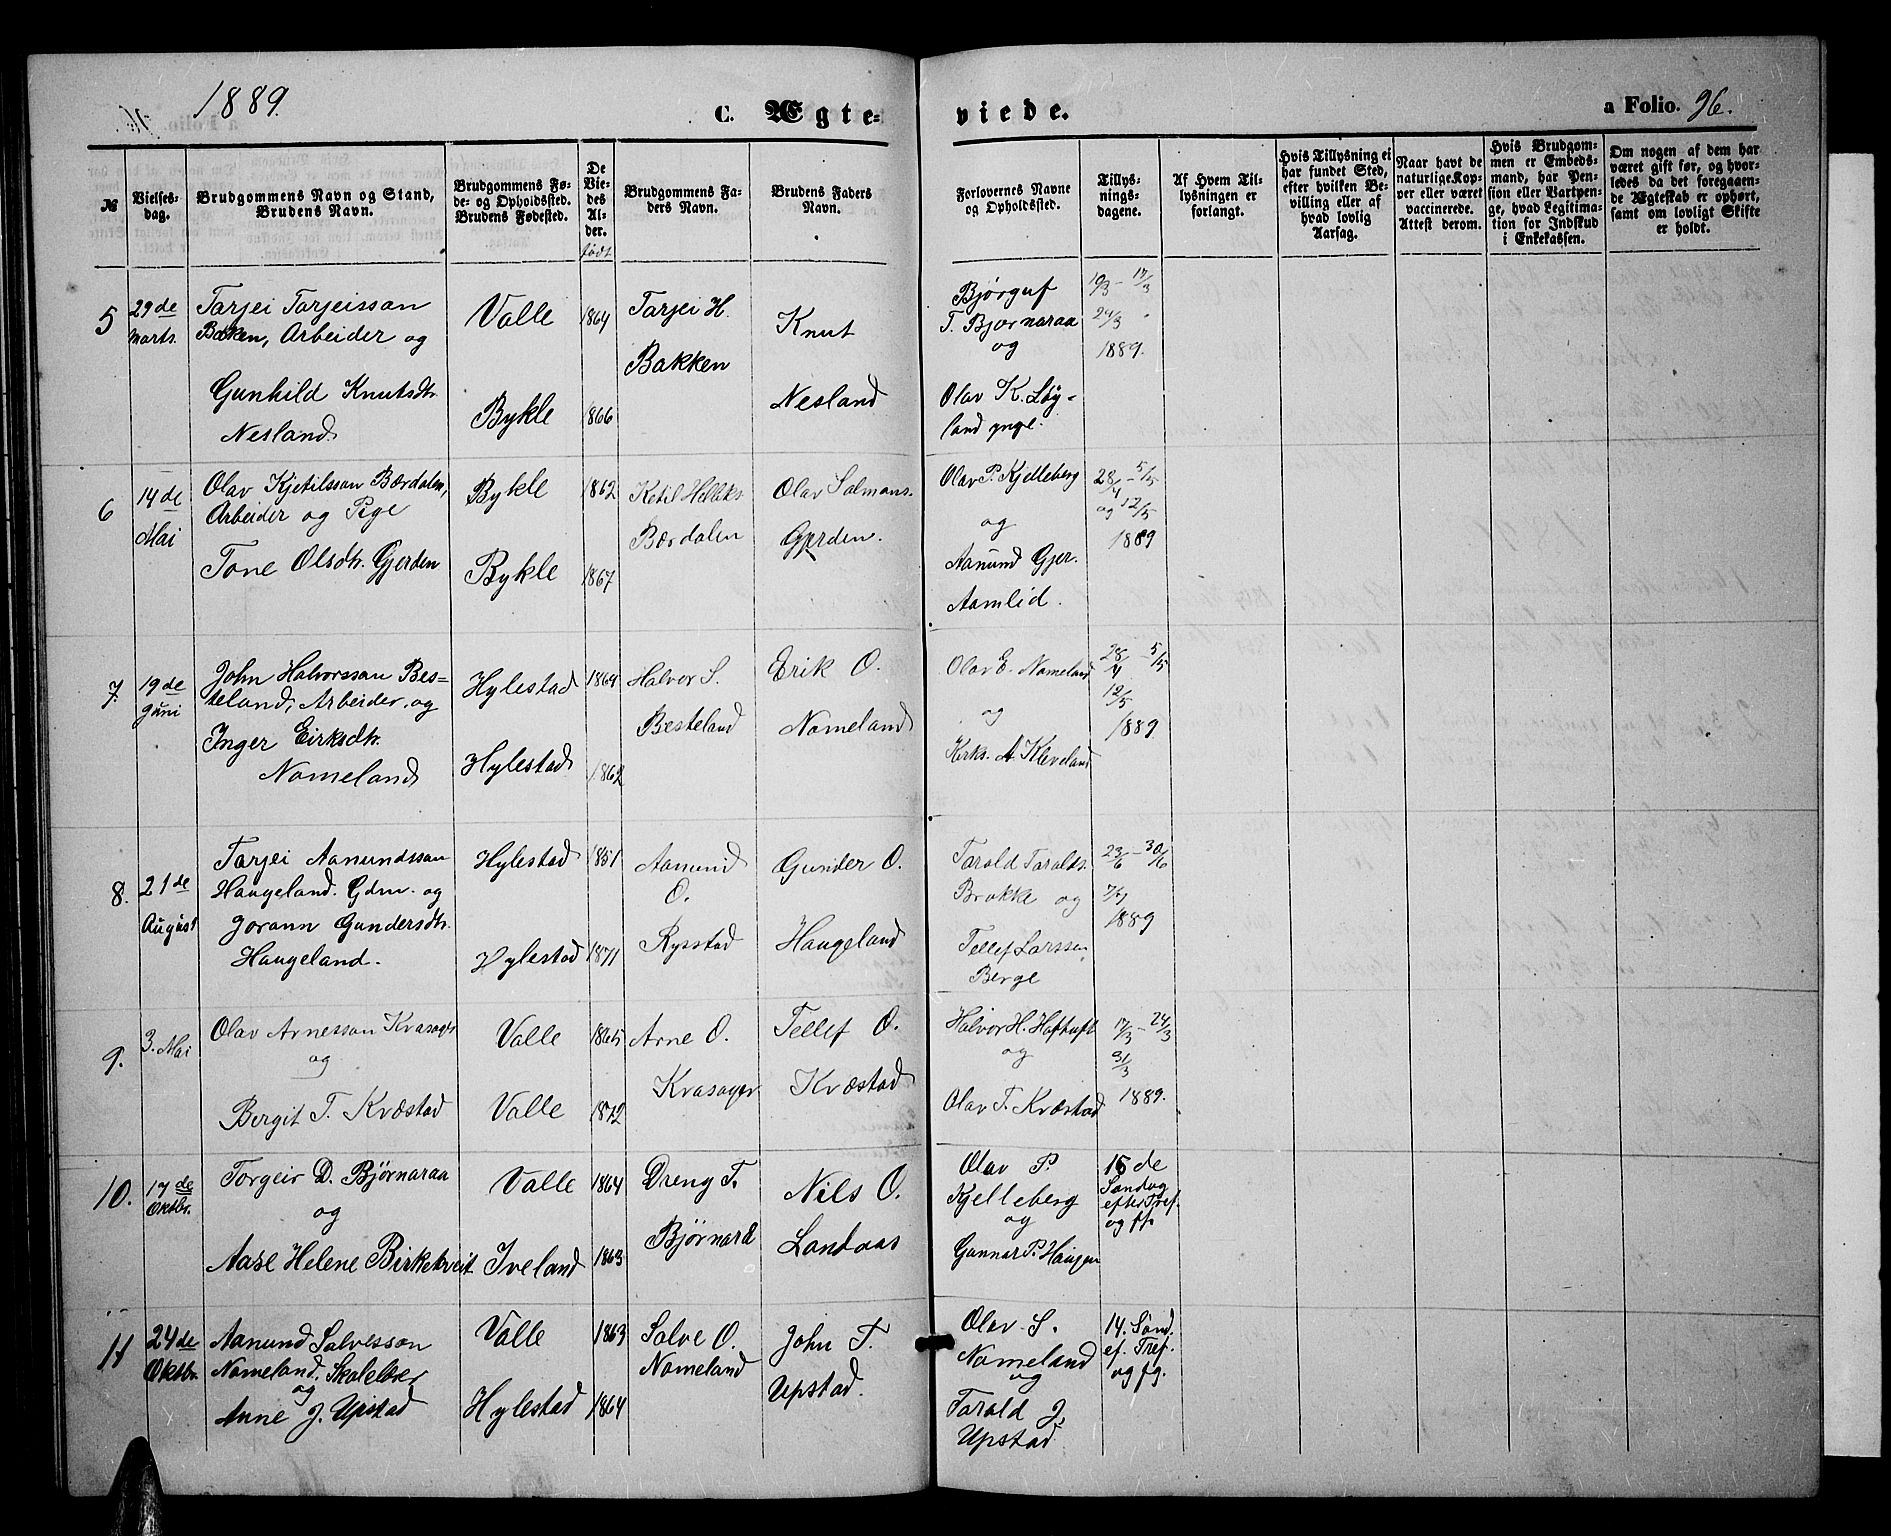 1889.
C. Ægte-
viede.
a Folio. 96.
№
Vielses-
dag.
Brudgommens Navn og Stand,
Brudens Navn.
Brudgommens Fø-
de- og Opholdssted.
Brudens Fødested.
De
Vie-
des
Al-
der.
født
Brudgommens Fa-
ders Navn.
Brudens Faders
Navn.
Forlovernes Navne
og Opholdssted.
Tillys-
nings-
dagene.
Af Hvem Til-
lysningen er
forlangt.
Hvis Tillysning ei
har fundet Sted,
efter hvilken Be-
villing eller af
hvad lovlig
Aarsag.
Naar havt de
naturlige Kop-
per eller været
vaccinerede.
Attest derom.
Hvis Brudgom-
men er Embeds-
mand, har Pen-
sion eller Vartpen-
ge, hvad Legitima-
tion for Indskud
i Enkekassen.
Om nogen af dem har
været gift før, og hvor-
ledes da det foregaaen-
de Ægteskab er ophørt,
samt om lovligt Skifte
er holdt.
5
29de
Marts.
Tarjei Tarjeisson
Bakken, Arbeider og
Gunhild Knutsdtr.
Nesland
Valle
Bykle
1864
1866
Tarjei H.
Bakken
Knut
Nesland
Bjørguf
T. Bjørnaraa
og
Olav K. Løy-
land yngr.
10/3 - 17/3
24/3
1889.
6
14de
Mai
Olav Kjetilsson Bærdalen,
Arbeider og Pige
Tone Olsdtr. Gjerden
Bykle
Bykle
1862
1867
Ketil Helliks.
Bærdalen
Olav Salmons.
Gjerden.
Olav P. Kjelleberg
og
Aanund Gjer.
Aamlid.
28/4 - 5/5
og 12/5
1889
7.
19de
Juni
John Halvorsson Bes-
teland, Arbeider, og
Inger Eirksdtr.
Nomeland
Hylestad
Hylestad
1864
1862
Halvor S.
Besteland
Erik O.
Nomeland
Olav E. Nomeland
og
Kirks. A. Kleveland
28/4 5/5
12/5
1889
8.
21de
August
Tarjei Aanundsson
Haugeland. Gdm. og
Jorann Gundersdtr.
Haugeland.
Hylestad
Hylestad
1851
1871
Aanund
O.
Rysstad
Gunder O.
Haugeland
Tarald Taralds.
Brokke og
Tellef Larssen
Berge
23/6 - 30/6
7/7
1889
9.
3. Mai
Olav Arnesson Kvasager
og
Bergit T. Kvæstad
Valle
Valle
1865
1872
Arne O.
Kvasager
Tellef O.
Kvæstad
Halvor H. Hoftuft
og
Olav T. Kvæstad
17/3 - 24/3
31/3
1889.
10.
17de
Oktbr.
Torgeir D. Bjørnaraa
og
Aase Helene Birkekveit
Valle
Iveland
1864
1863
Dreng T.
Nils O.
Landaas
Olav P.
Kjelleberg
og
Gunnar P. Haugen
15de
Søndag
efter Tref.
og ff.
11
24de
Oktbr.
Aanund Salvesson
Nomeland, Skolelærer
og
Anne J. Upstad
Valle
Hylestad
1863
1864
Salve O.
Nomeland
John T.
Upstad.
Olav S.
Nomeland
og
Tarald J.
Upstad
14. Sønd.
ef. Tref.
og fg.